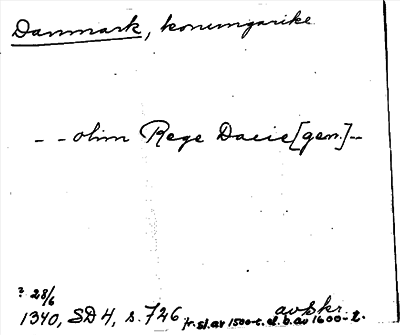 Danmark, konungarike
- - olim Rege Dacie [gen.] --
? 28/6
1340, SD 4, s. 726 avskr.
fr. sl. av 1500-t. el. b. av 1600-t.